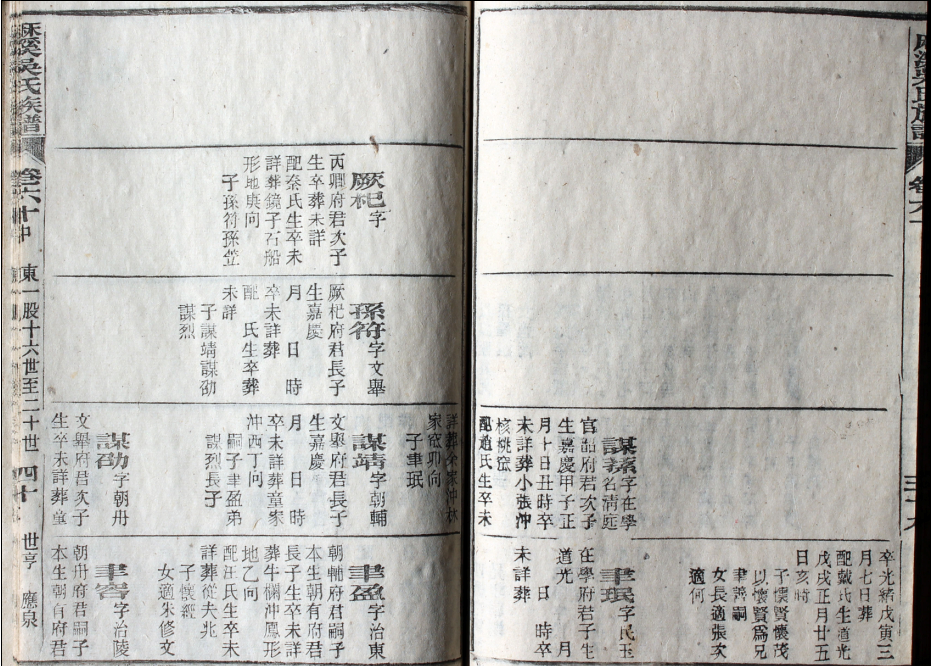 卒光緒戊寅三
月七日葬
配戴氏生道光
戊戌正月廿五
日亥時
子懷賢懷茂
以懷賢為兄
聿善嗣
女長適張次
適何
謀蓀字在學
名清遠
官品府君次子
生嘉慶甲子正
月十日丑時卒
未詳葬小張沖
核桃窊
配趙氏生卒未
聿珉字民玉
在學府君子生
道光 月
日 時卒
未詳葬
詳葬余家沖林
家窊卯向
子聿珉
厥杞字
丙卿府君次子
生卒葬未詳
配秦氏生卒未
詳葬鏡子石船
形地庚向
子孫符孫笠
孫符字文舉
厥杞府君長子
生嘉慶
月 日 時
卒未詳葬
配 氏生卒葬
未詳
子謀靖謀劭
謀烈
謀靖字朝輔
文舉府君長子
生嘉慶
月 日 時
卒未詳葬童家
沖西丁向
嗣子聿盈弟
謀烈長子
謀劭字朝冊
文舉府君次子
生卒未詳葬童
聿盈字治東
朝輔府君嗣子
本生朝有府君
長子生卒未詳
葬牛欄沖鳳形
地乙向
配汪氏生卒未
詳葬從夫兆
子懷經
女適朱修文
聿容字治陵
朝冊府君嗣子
本生朝有府君
麻溪吳氏族譜 卷六十中 東一股十六世至二十世 四十 世亨 應泉